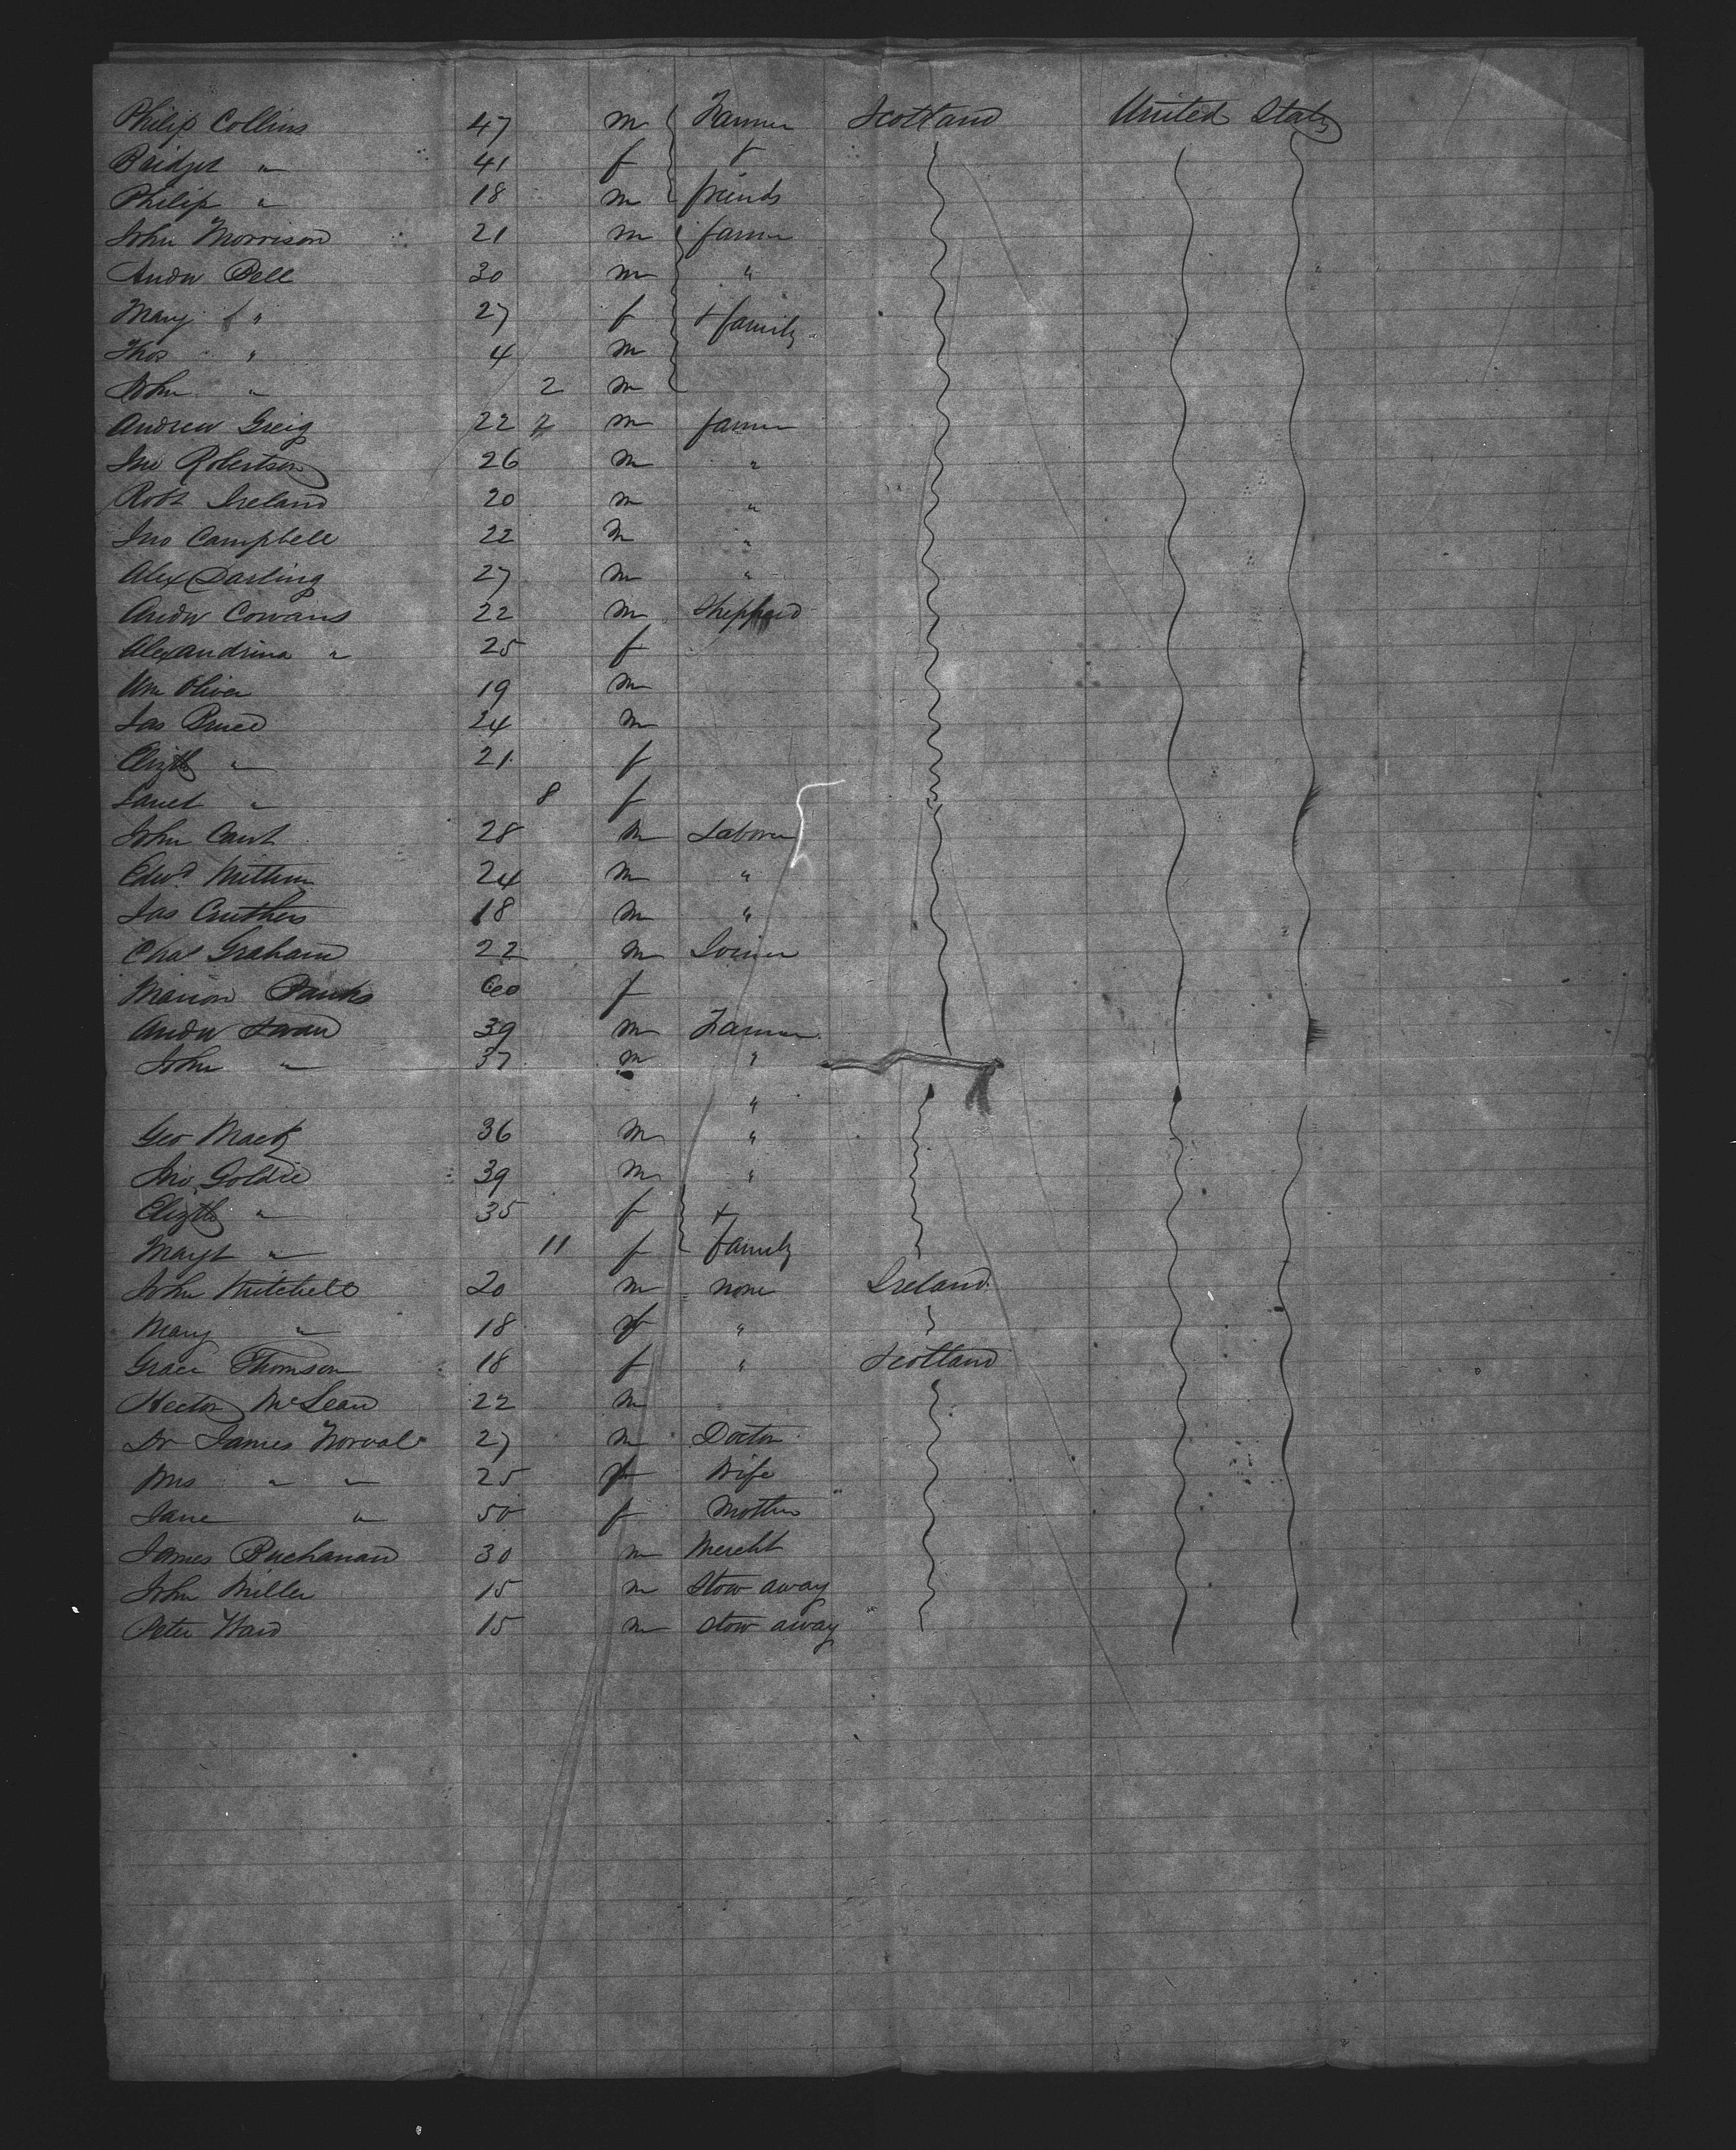 Philip Collins 47 m Farmer Scotland United States
Bridget " 41 f &
Philip " 18 m friends
John Morrison 21 m farmer
Andw Bell 30 m "
Mary " 27 f & family
Thos " 4 m
John " 2 m
Andrew Greig 22 m farmer
Jno Robertson 26 m "
Robt Ireland 20 m "
Jno Campbell 22 m "
Alex Darling 27 m "
Andw Cowans 22 m Shepherd
Alexandrina " 25 f
Wm Oliver 19 m
Jas Bruce 24 m
Elizth " 21 f
Janet " 8 f
John 28 m Laborer
Edwd 24 m "
Jas Cruthers 18 m "
Chas Graham 22 m Joiner
Marion Banks 60 f
Andw Swan 39 m Farmer
John " 37 m "
"
Geo Mack 36 m "
Jno Goldie 39 m "
Elizth " 35 f &
Margt " 11 f family
John Mitchell 20 m none Ireland
Mary " 18 f "
Grace Thomson 18 f " Scotland
Hector McLean 22 m
Dr James Norval 27 m Doctor
Mrs " " 25 f Wife
Jane " 50 f Mother
James Buchanan 30 m Mercht
John Miller 15 m Stow away
Peter Ward 15 m stow away